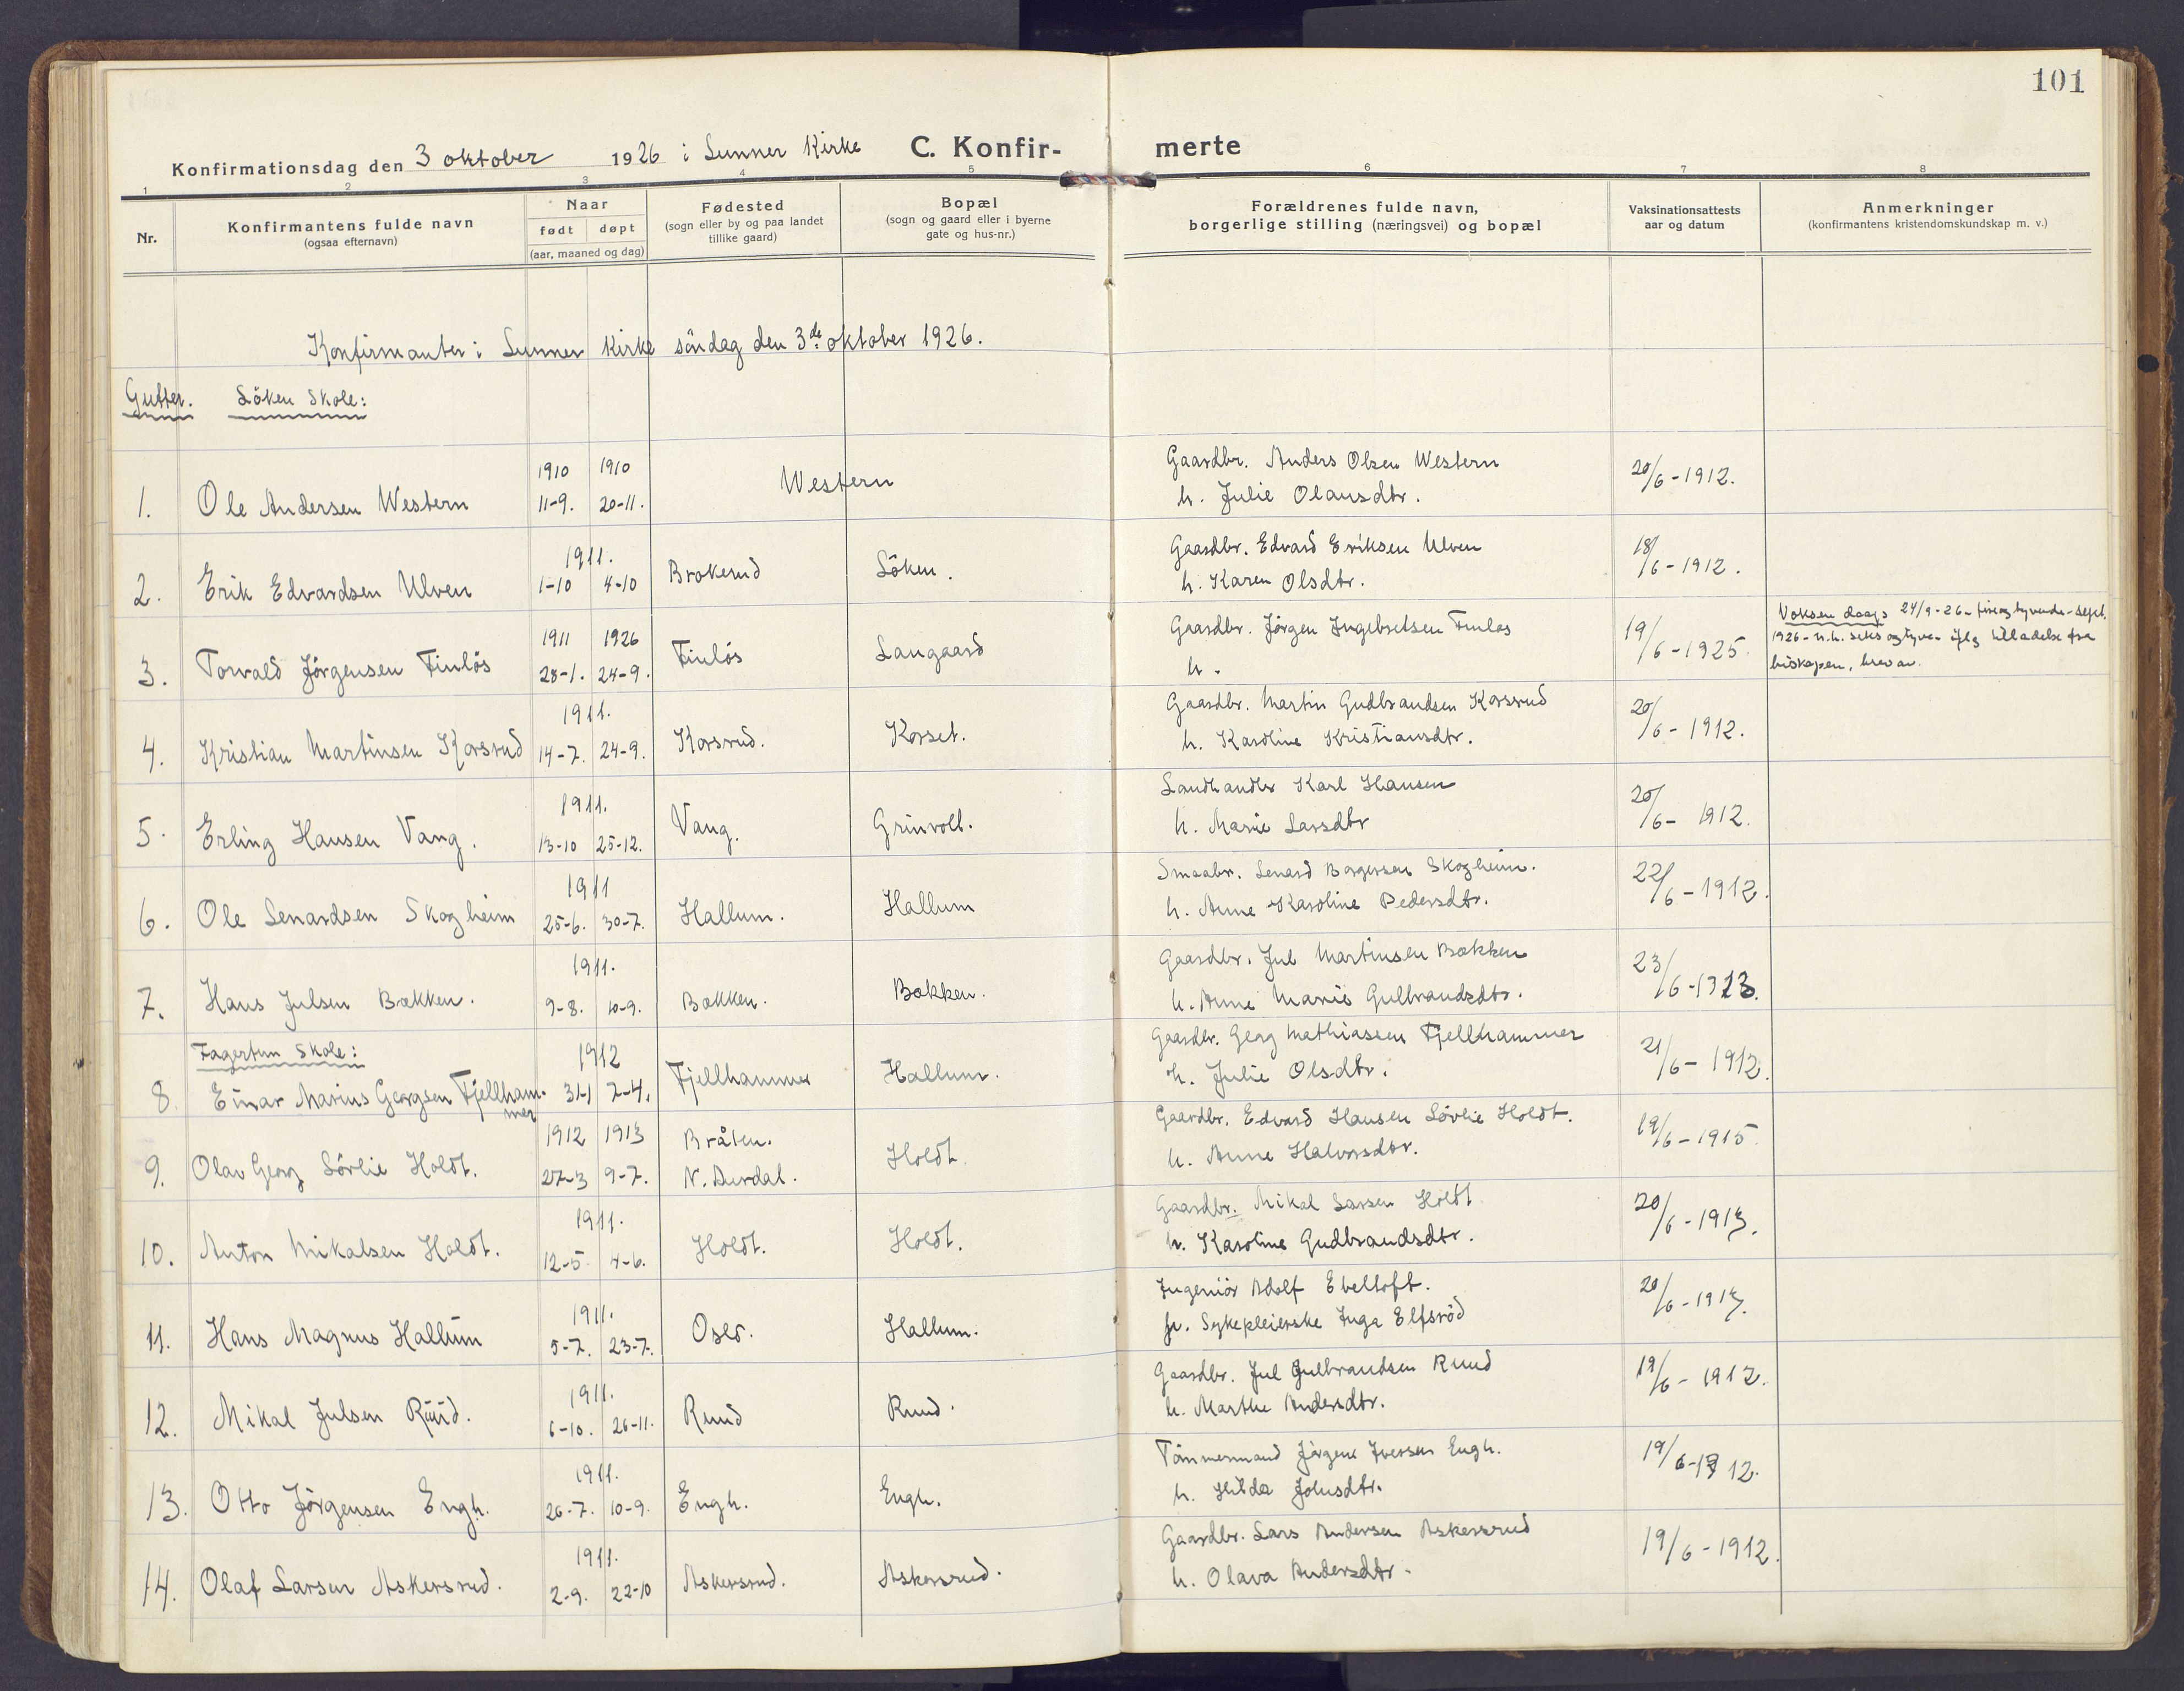 101
Konfirmationsdag den 3 oktober 1926 i Lunner Kirke C. Konfir- merte
1 2 3 4 5 6 7 8
Nr.
Konfirmantens fulde navn
(ogsaa efternavn)
Naar
født døpt
(aar, maaned og dag)
Fødested
(sogn eller by og paa landet
tillike gaard)
Bopæl
(sogn og gaard eller i byerne
gate og hus-nr.)
Forældrenes fulde navn,
borgerlige stilling (næringsvei) og bopæl
Vaksinationsattests
aar og datum
Anmerkninger
(konfirmantens kristendomskundskap m. v.)
Konfirmanter i Lunner Kirke söndag den 3de oktober 1926.
Gutter. Löken Skole:
1910 1910
1. Ole Andersen Western 11-9. 20-11. Western
Gaardbr. Anders Olsen Western
h. Julie Olausdtr.
20/6-1912.
1911.
2. Erik Edvardsen Ulven 1-10 4-10 Brokerud Löken.
Gaardbr. Edvard Eriksen Ulven
h. Karen Olsdtr.
18/6-1912.
1911 1926
3. Torvald Jörgensen Finlös 28-1. 24-9. Finlös Langaard
Gaardbr. Jörgen Ingebretsen Finlös
h.
19/6-1925.
Voksen daap 24/9-26-fireogtyvende-sept.
1926-n.h. seksogtyve- iflg tilladelse fra
biskopen, brev av.
1911.
4. Kristian Martinsen Korsrud 14-7. 24-9. Korsrud. Korset.
Gaardbr. Martin Gudbrandsen Korsrud
h. Karoline Kristiansdtr.
20/6-1912.
1911.
5. Erling Hansen Vang. 13-10 25-12. Vang. Grinvoll.
Landhandler Karl Hansen
h. Marie Larsdtr
20/6-1912.
1911
6. Ole Lenardsen Skogheim 25-6. 30-7. Hallum. Hallum
Smaabr. Lenard Borgersen Skogheim.
h. Anne Karoline Pedersdtr.
22/6-1912.
1911.
7. Hans Julsen Bækken. 9-8. 10-9. Bækken. Bækken.
Gaardbr. Jul Martinsen Bækken
h. Anne Marie Gulbrandsdtr.
23/6-1923.
Fagertun Skole:
1912
8. Einar Marius Georgsen Fjellham- 31-1 7-4. Fjellhammer Hallum.
mer
Gaardbr. Georg Mathiassen Fjellhammer
h. Julie Olsdtr.
21/6-1912.
1912 1913 Bråten.
9. Olav Georg Sörlie Holdt. 27-3 9-7. N. Aurdal. Holdt.
Gaardbr. Edvard Hansen Sörlie Holdt.
h. Anne Halvorsdtr.
19/6-1915.
1911.
10. Anton Mikalsen Holdt. 12-5 4-6. Holdt. Holdt.
Gaardbr. Mikal Larsen Holdt
h. Karoline Gudbrandsdtr.
20/6-1913.
1911.
11. Hans Magnus Hallum 5-7. 23-7. Oslo. Hallum.
Ingeniör Adolf Ebeltoft.
p. Sykepleierske Inga Elfsröd
20/6-
1911.
12. Mikal Julsen Ruud. 6-10. 26-11. Ruud Ruud.
Gaardbr. Jul Gulbrandsen Ruud
h. Marthe Andersdtr.
19/6-1912.
1911.
13. Otto Jörgensen Engh. 26-7. 10-9. Engh. Engh.
Tömmermand Jörgen Iversen Engh.
h. Hilda Johnsdtr.
19/6-1912.
1911.
14. Olaf Larsen Askersrud. 2-9. 22-10 Askersrud. Askersrud.
Gaardbr. Lars Andersen Askersrud
h. Olava Andersdtr.
19/6-1912.